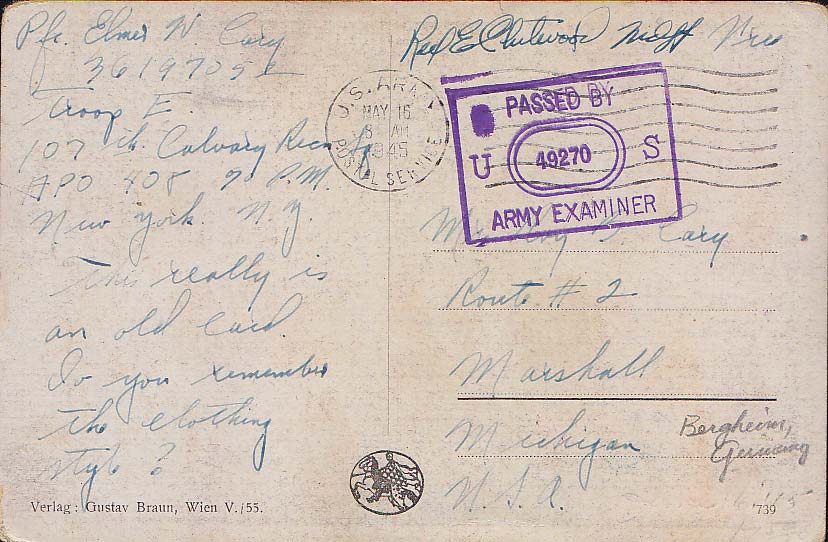 Pfc. Elmer W Cary
36197051
Troop E.
107 th Calvary Recn
APO 408 % P.M.
New York. N.Y.
This really is
an old card.
Do you remember
the clothing
style?
Verlag: Gustav Braun, Wien V./55.
U.S. ARMY
MAY 16
8 AM
1945
POSTAL SERVICE
PASSED BY
U 49270 S
ARMY EXAMINER
Roy Cary
Route # 2
Marshall
Michigan
U.S.A.
Bergheim,
Germany
739